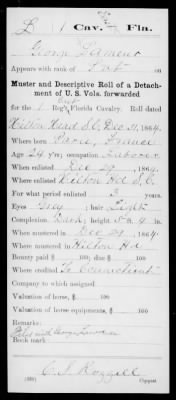 L | 1 | Cav. | Fla.
George Lameur
Appears with rank of Pvt on
Muster and Descriptive Roll of a Detach-
ment of U. S. Vols. forwarded
for the 1 Reg't Florida Cavalry. Roll dated
Hilton Head S.C., Dec 31, 1864.
Where born Paris, France
Age 24 y'rs; occupation Laborer
When enlisted Dec 29, 1864.
Where enlisted Hilton Hd S.C.
For what period enlisted 3 years.
Eyes Grey; hair Light
Complexion Dark; height 5 ft. 9 in.
When mustered in Dec 29, 1864.
Where mustered in Hilton Hd
Bounty paid $ 100; due $ 100
Where credited To Connecticut
Company to which assigned
Valuation of horse, $ 100
Valuation of horse equipments, $ 100
Remarks:
George
Book mark:
Copyist.